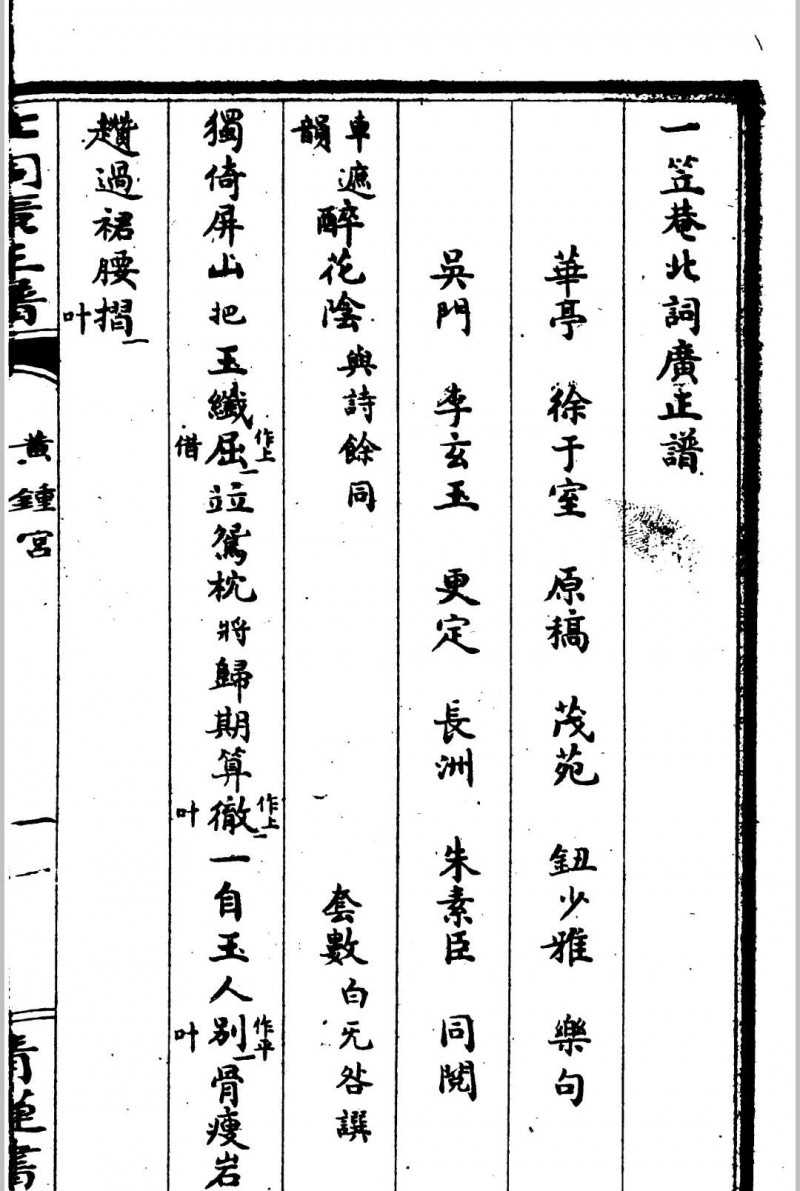 一笠菴北詞廣正譜
華亭 徐于室 原稿 茂苑 鈕少雅 樂句
吳門 李玄玉 更定 長洲 朱素臣 同閱
車遮韻 醉花陰 與詩餘同 套數 白无咎譔
獨倚屏山把玉纖屈作上借竝鴛枕將歸期算徹作上叶一自玉人別作平叶骨瘦岩
趲過裙腰摺叶
黄鍾宮 一